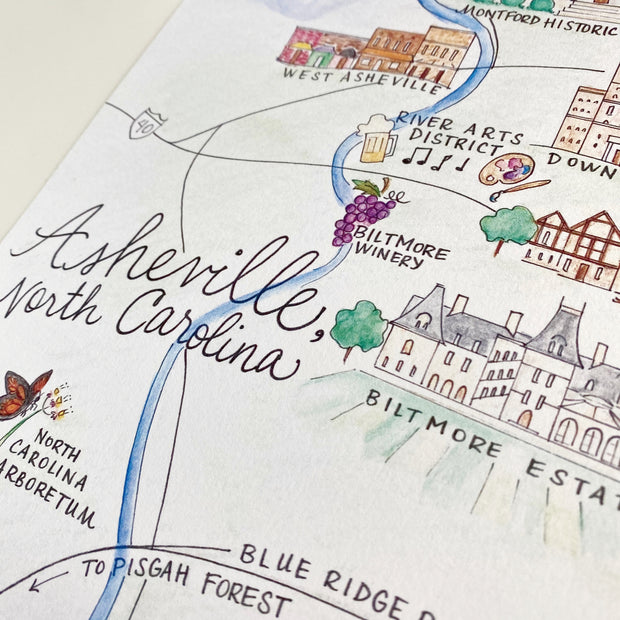 MONTFORD HISTORIC
WEST ASHEVILLE
40
RIVER ARTS
DISTRICT
DOWN
BILTMORE
WINERY
Asheville,
North Carolina
BILTMORE ESTAT
NORTH
CAROLINA
ARBORETUM
BLUE RIDGE P
TO PISGAH FOREST